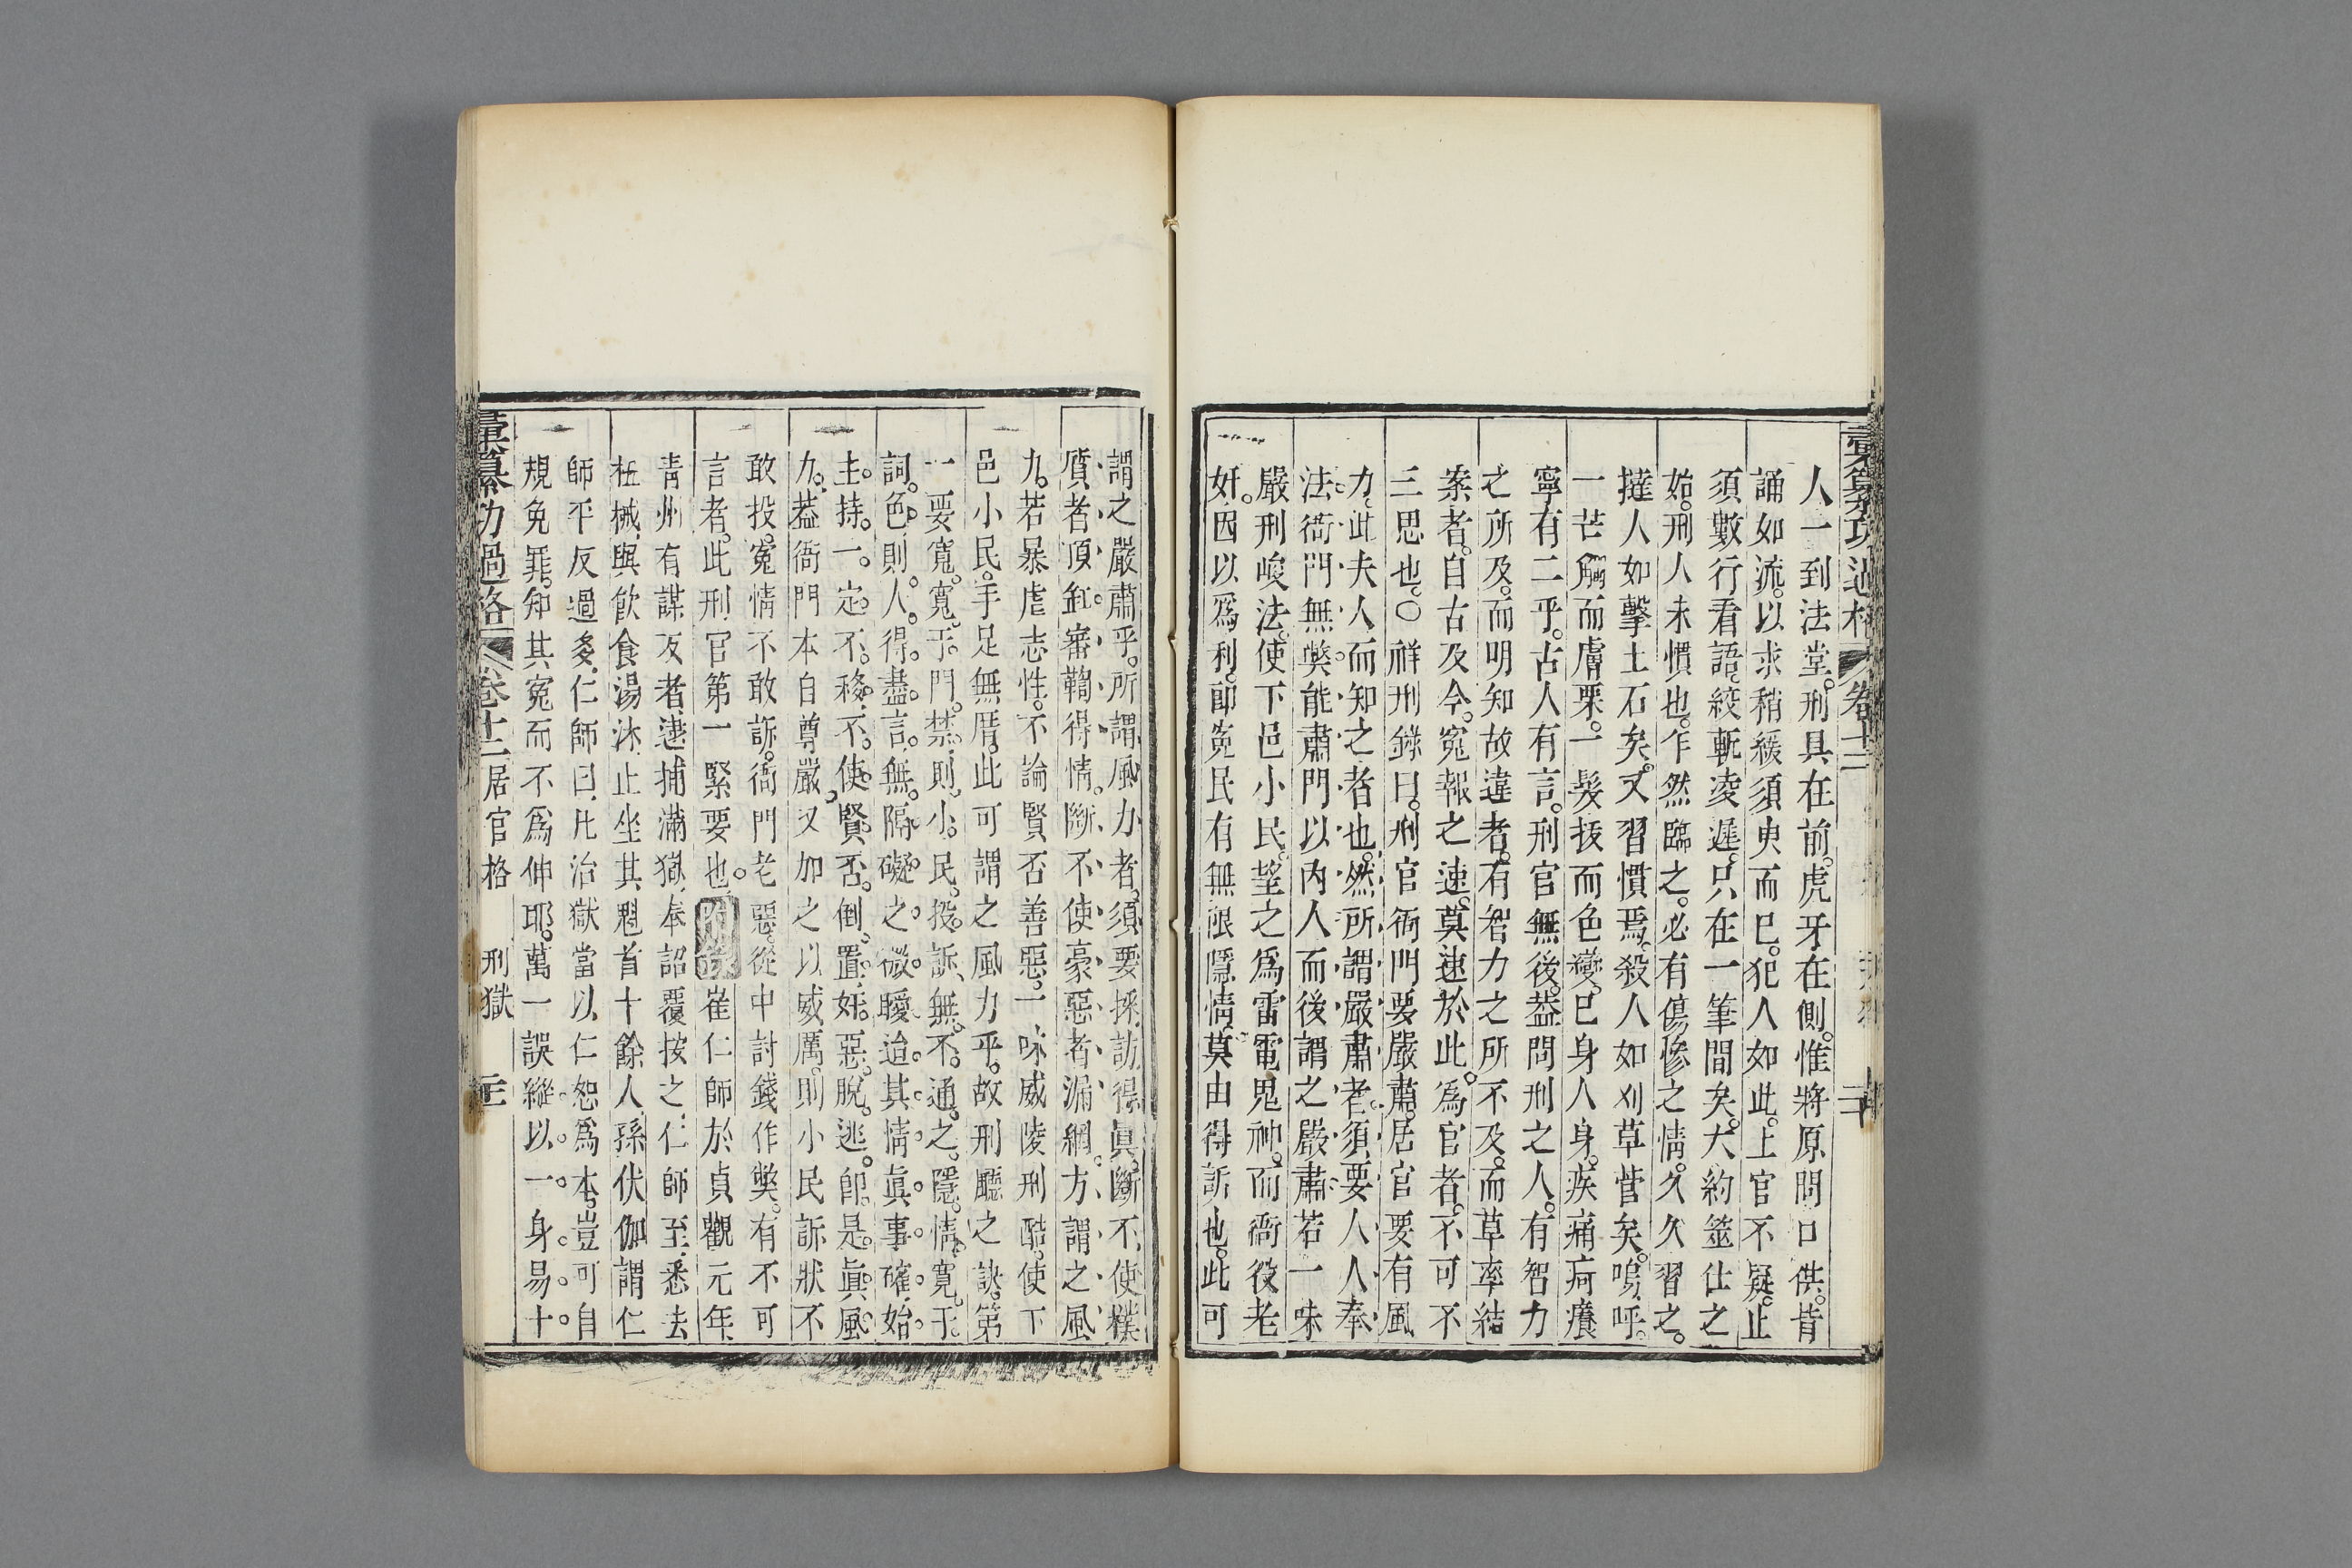 彙纂功過格 卷十二
人一到法堂。刑具在前。虎牙在側。惟將原問口供。背
誦如流。以求稍緩須臾而已。犯人如此。上官不疑。止
須數行看語。絞斬凌遲。只在一筆間矣。大約筮仕之
始。刑人未慣也。乍然臨之。必有傷慘之情。久久習之。
撻人如擊土石矣。又習慣焉。殺人如刈草菅矣。嗚呼。
一芒觸而膚栗。一髮拔而色變。已身人身。疾痛疴癢
寧有二乎。古人有言。刑官無後。葢問刑之人。有智力
之所及。而明知故違者。有智力之所不及。而草率結
案者。自古及今。寃報之速。莫速於此。爲官者。不可不
三思也。○祥刑錄曰。刑官衙門要嚴肅。居官要有風
力。此夫人而知之者也。然所謂嚴肅者。須要人人奉
法。衙門無獘。能肅門以內人而後謂之嚴肅。若一味
嚴刑峻法。使下邑小民。望之爲雷電鬼神。而衙役老
奸。因以爲利。卽寃民有無限隱情。莫由得訴也。此可
謂之嚴肅乎。所謂風力者。須要採訪得眞。斷不使樸
質者頂缸。審鞫得情。斷不使豪惡者漏網。方謂之風
九。若暴虐志性。不論賢否善惡。一味威陵刑酷。使下
邑小民。手足無厝。此可謂之風力乎。故刑廳之訣。第
一要寬。寬于門禁。則小民投訴。無不通之隱情。寬于
詞色。則人得盡言。無隔礙之微曖。迨其情眞事確。始
主持一定不移。不使賢否倒置。奸惡脫逃。卽是眞風
九。葢衙門本自尊嚴。又加之以威厲。則小民訴狀不
敢投。寃情不敢訴。衙門老惡。從中討錢作獘。有不可
言者。此刑官第一緊要也。附錄崔仁師於貞觀元年
靑州有謀反者。逮捕滿獄。奉詔覆按之。仁師至。悉去
杻械。與飮食湯沐。止坐其魁首十餘人。孫伏伽謂仁
師平反過多。仁師曰。凡治獄當以仁恕爲本。豈可自
規免罪。知其寃而不爲伸耶。萬一誤縱。以一身易十
彙纂功過格 卷十二 居官格 刑獄 三